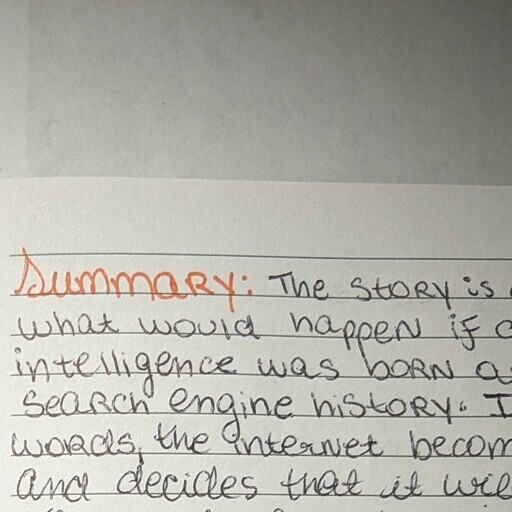 Summary: The story is
what would happen if
intelligence was born
search engine history. I
words, the internet becom
and decides that it wil